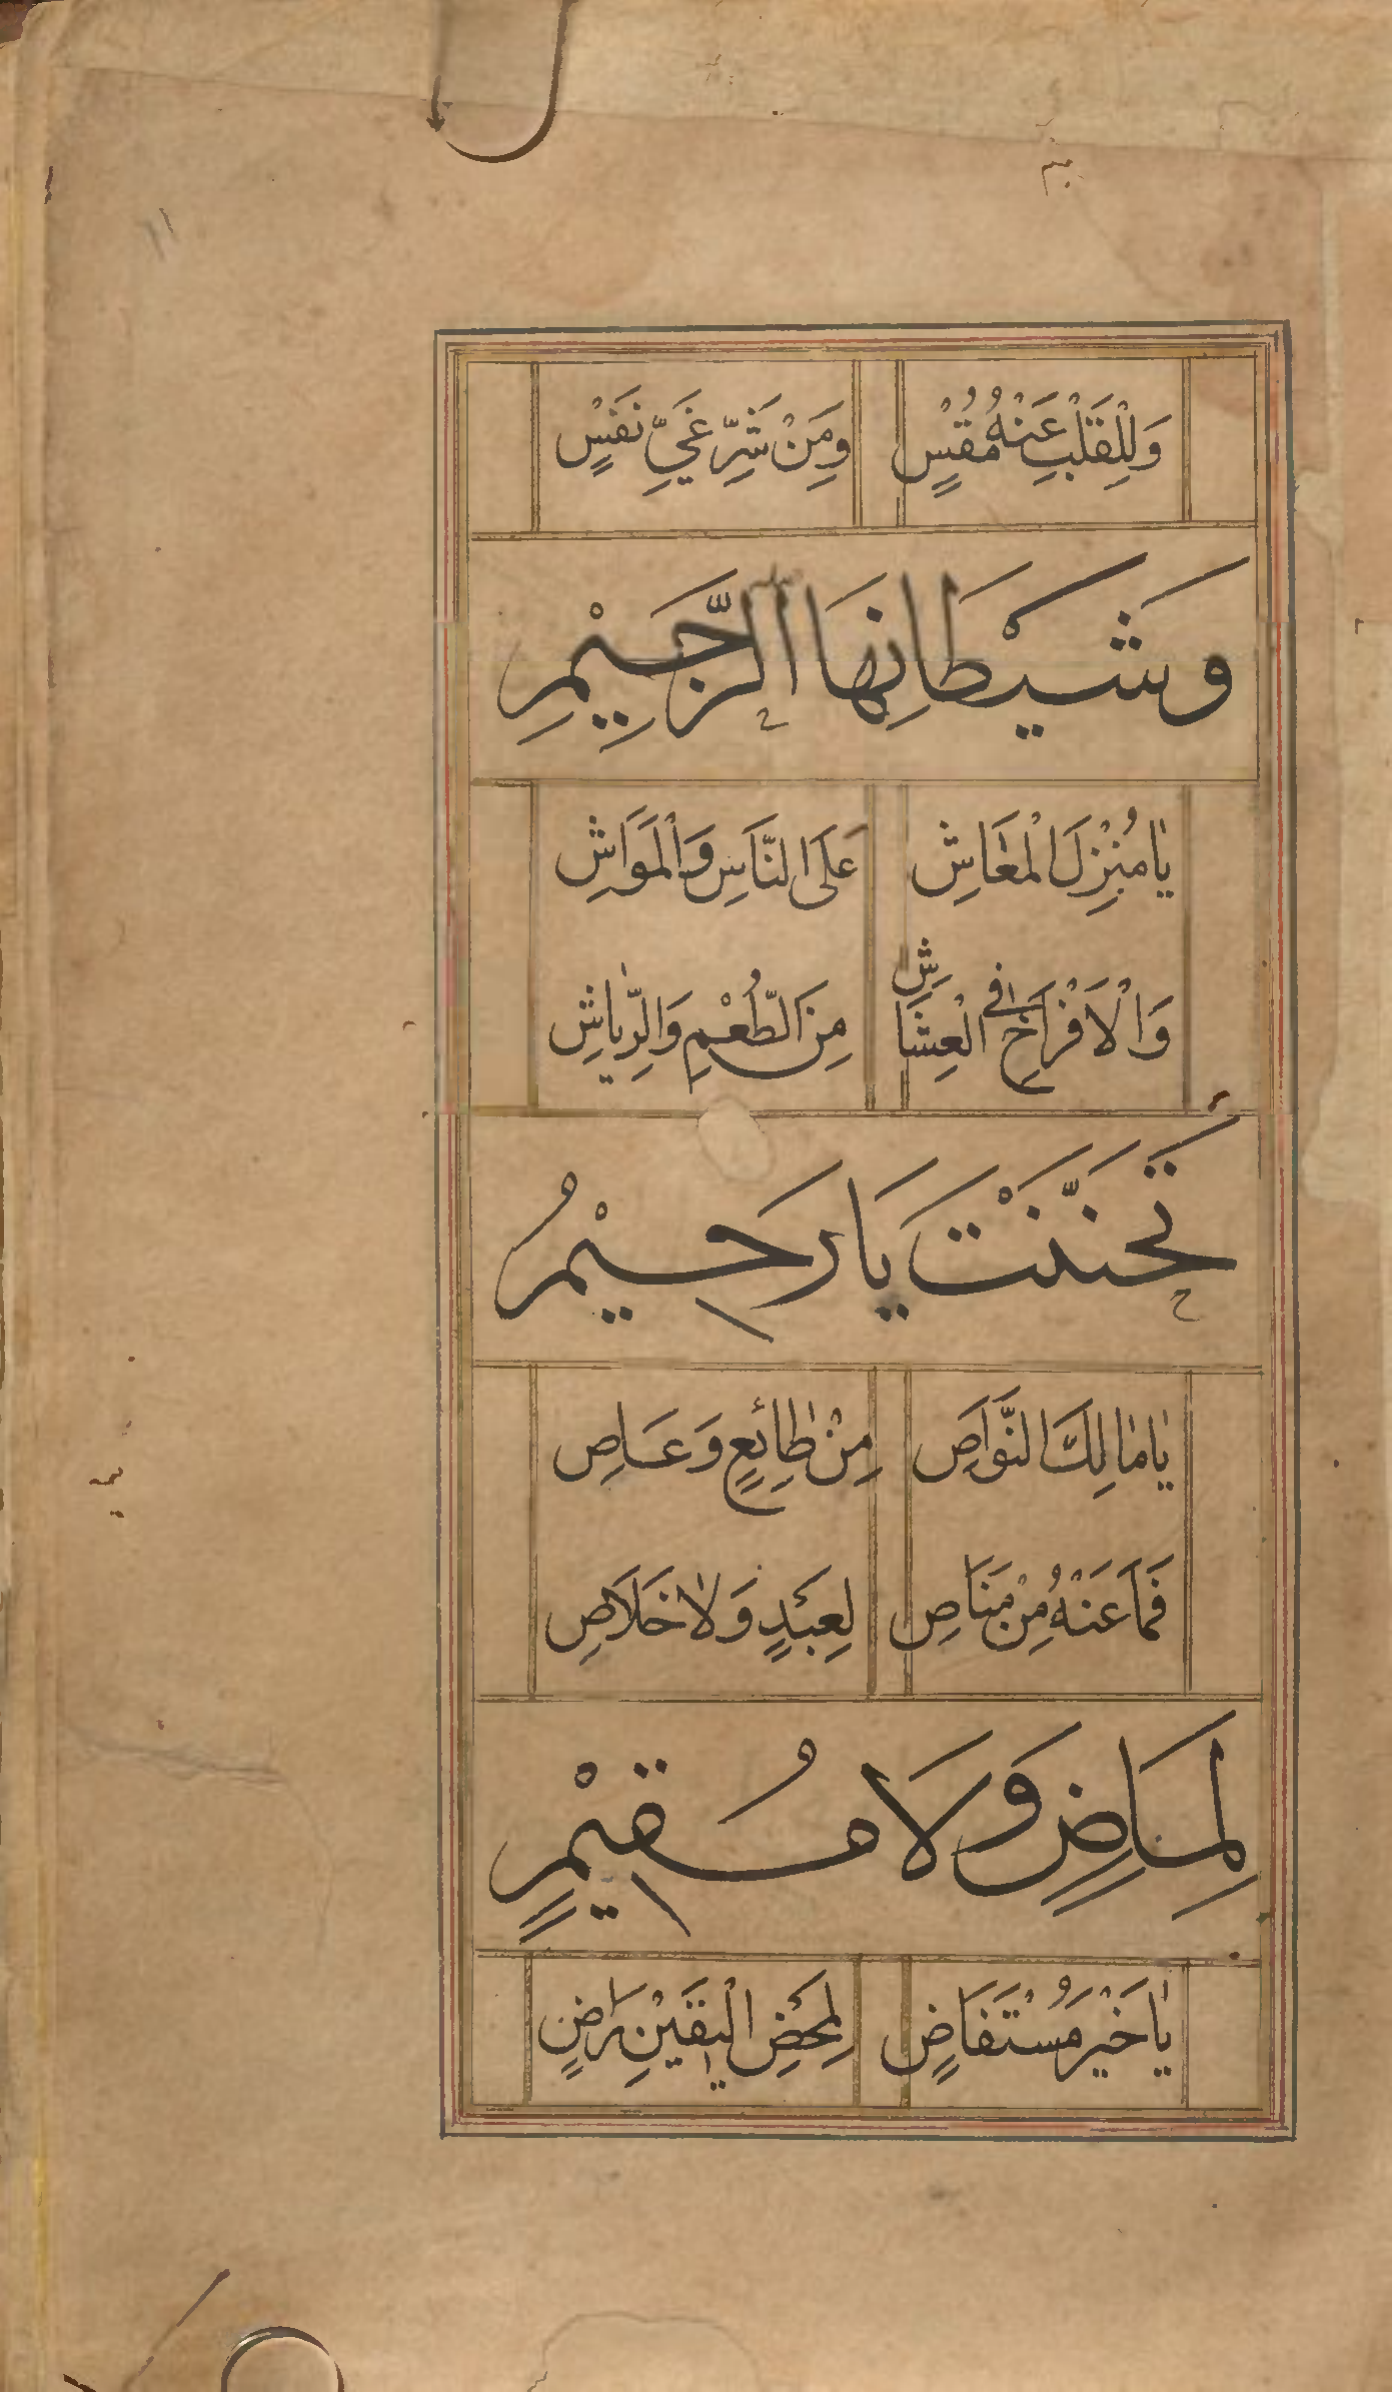 وَلِلْقَلْبِ عَنْهُ مُقْسٍ وَمِنْ شَرِّ غَيِّ نَفْسٍ
وَشَيْطَانِهَا الرَّجِيْمِ
يَا مُنْزِلَ الْمَعَاشِ عَلَى النَّاسِ وَالْمَوَاشِ
وَالْاَفْرَاخِ فِي الْعِشَاشِ مِنَ الطُّعْمِ وَالرِّيَاشِ
تَحَنَّنْتَ يَا رَحِيْمُ
يَا مَالِكَ النَّوَاصِ مِنْ طَائِعٍ وَعَاصِ
فَمَا عَنْهُ مِنْ مَنَاصِ لِعَبْدٍ وَلَا خَلَاصِ
لِمَاضٍ وَلَا مُقِيْمٍ
يَا خَيْرَ مُسْتَفَاضٍ لِمَحْضِ الْيَقِيْنِ رَاضٍ